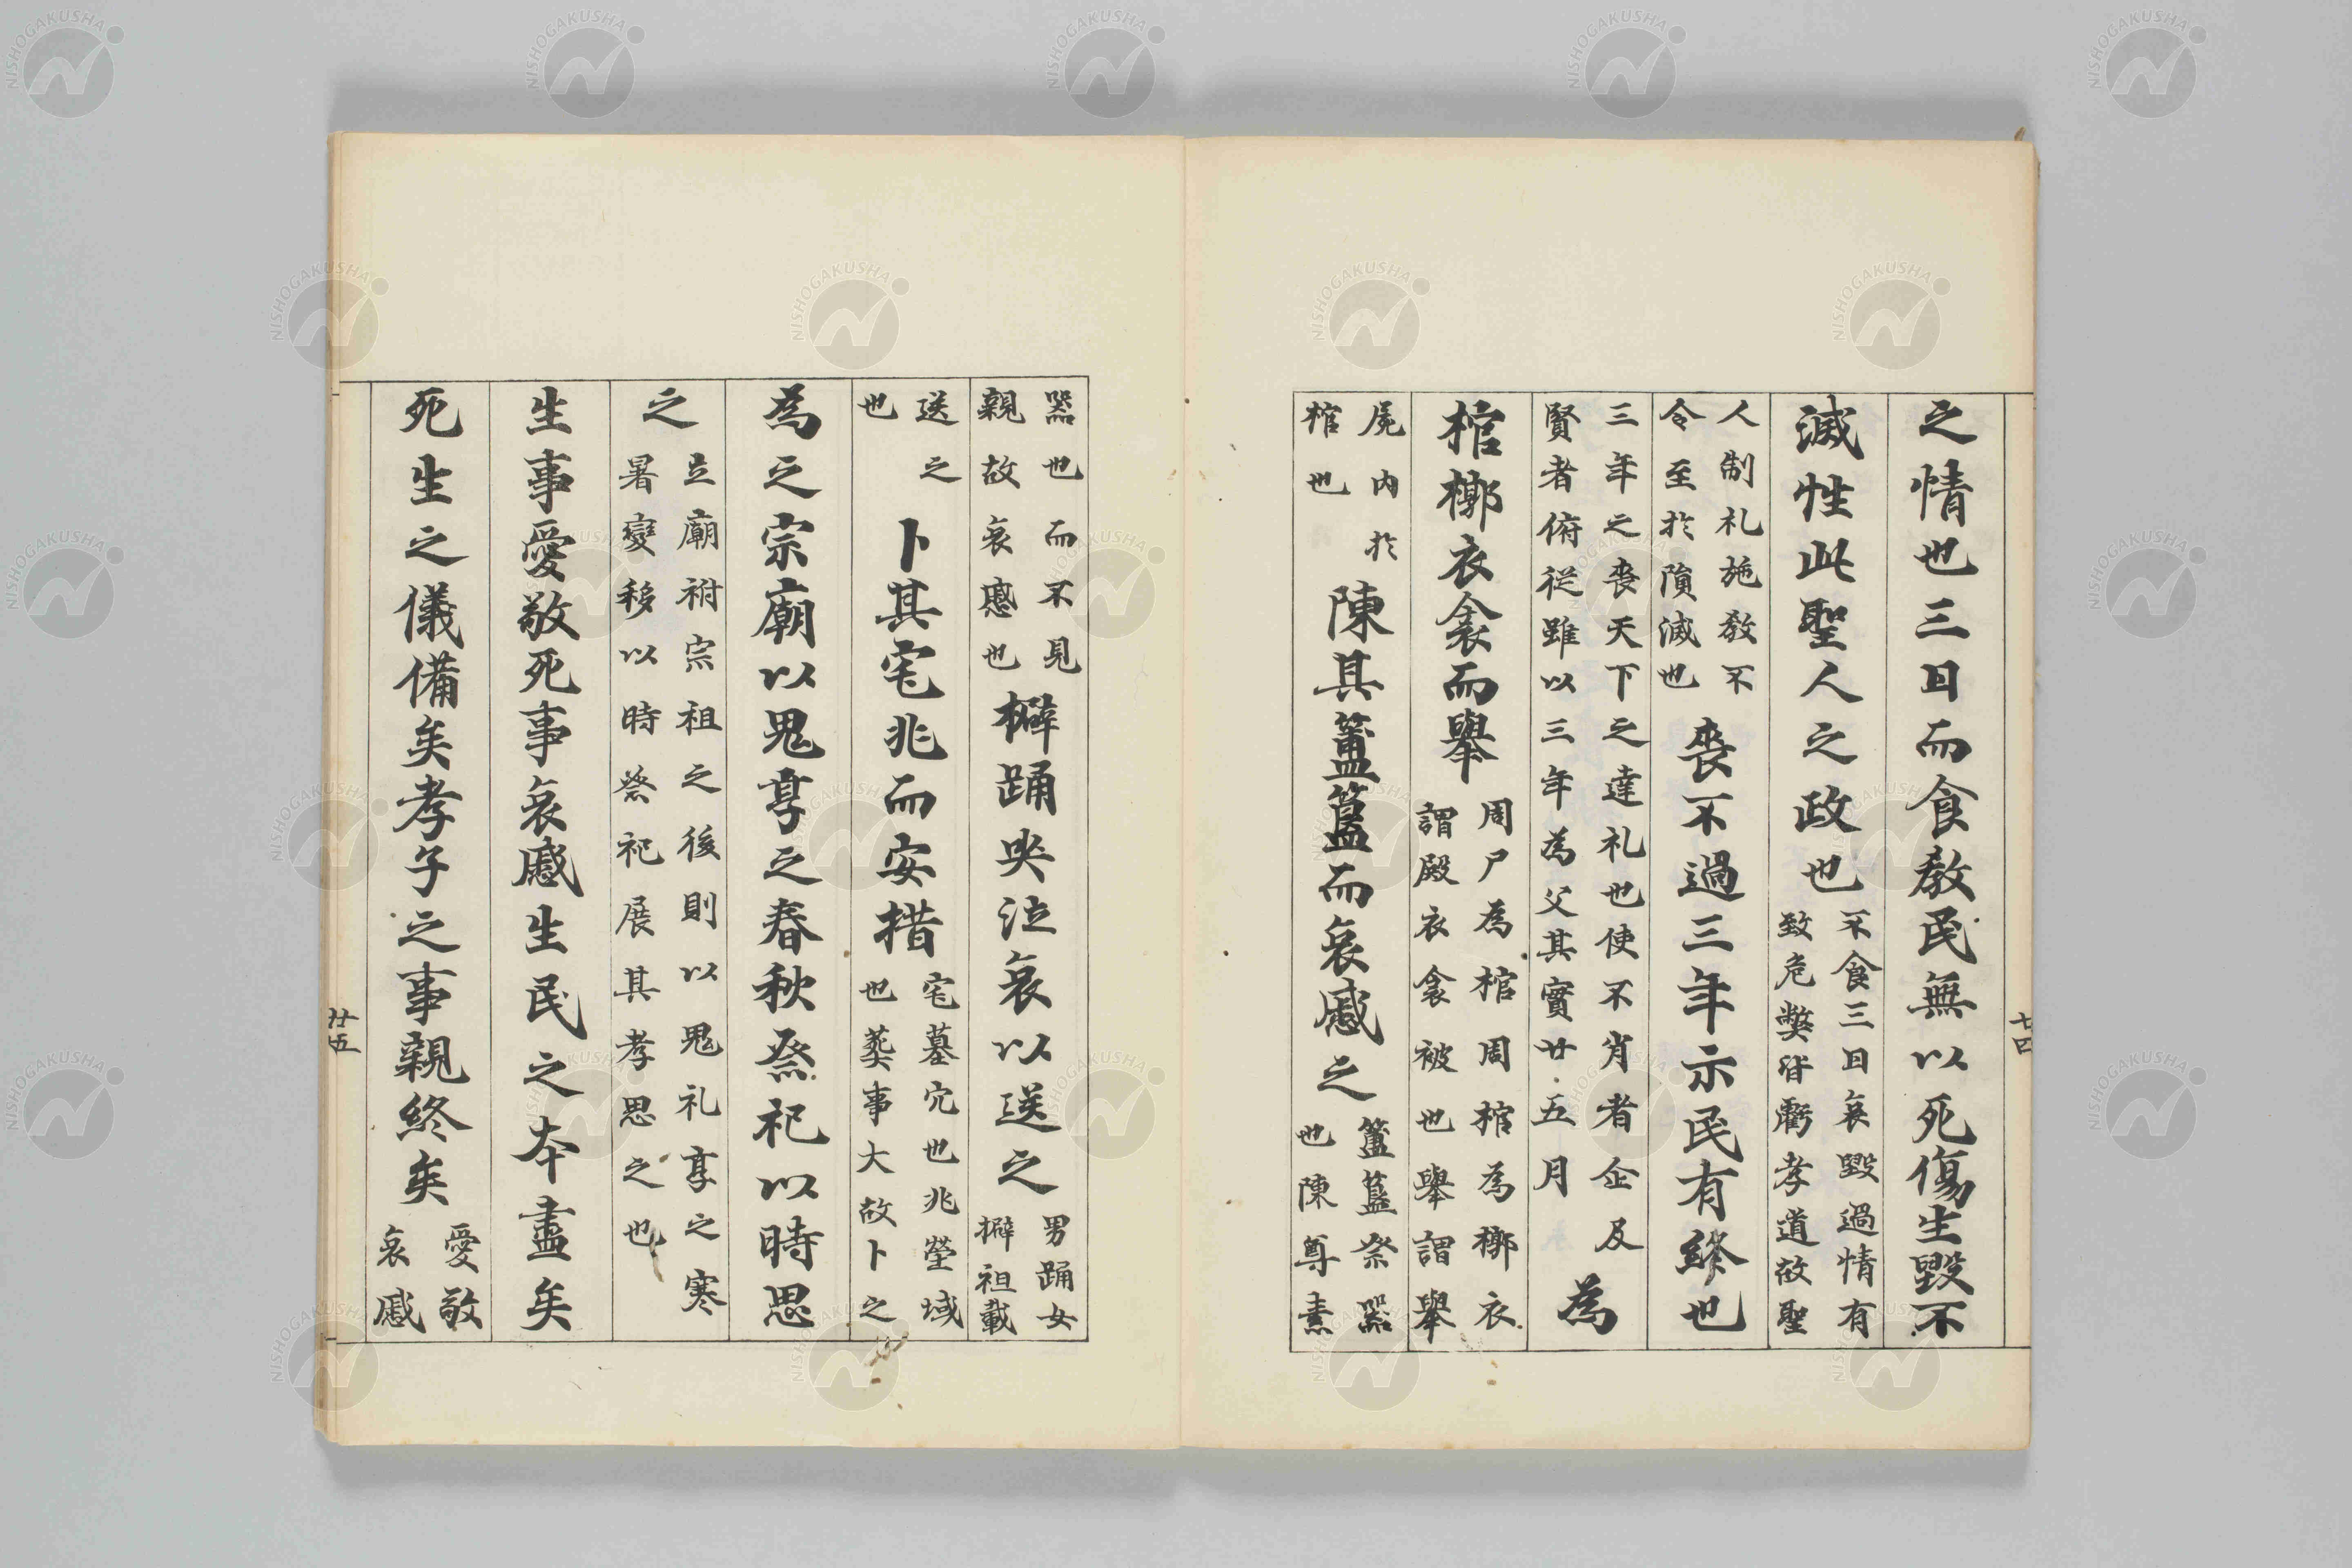 之情也三日而食教民無以死傷生毀不
滅性此聖人之政也
不食三日哀毀過情有
致危弊皆虧孝道故聖
人制礼施教不
令至於隕滅也
喪不過三年示民有終也
三年之喪天下之達礼也使不肖者企及
賢者俯従雖以三年為父其實廿五月
為
棺槨衣衾而舉
周尸為棺周棺為槨衣
謂殿衣衾被也舉謂舉
屍内於
棺也
陳其簠簋而哀慼之
簠簋祭器
也陳尊素
廿四
器也而不見
親故哀慼也
擗踊哭泣哀以送之
男踊女
擗祖載
送之
也
卜其宅兆而安措
宅墓穴也兆塋域
也葬事大故卜之
為之宗廟以鬼享之春秋祭祀以時思
之
立廟祔宗祖之後則以鬼礼享之寒
暑變移以時祭祀展其孝思之也
生事愛敬死事哀慼生民之本盡矣
死生之儀備矣孝子之事親終矣
愛敬
哀慼
廿五
NISHOGAKUSHA